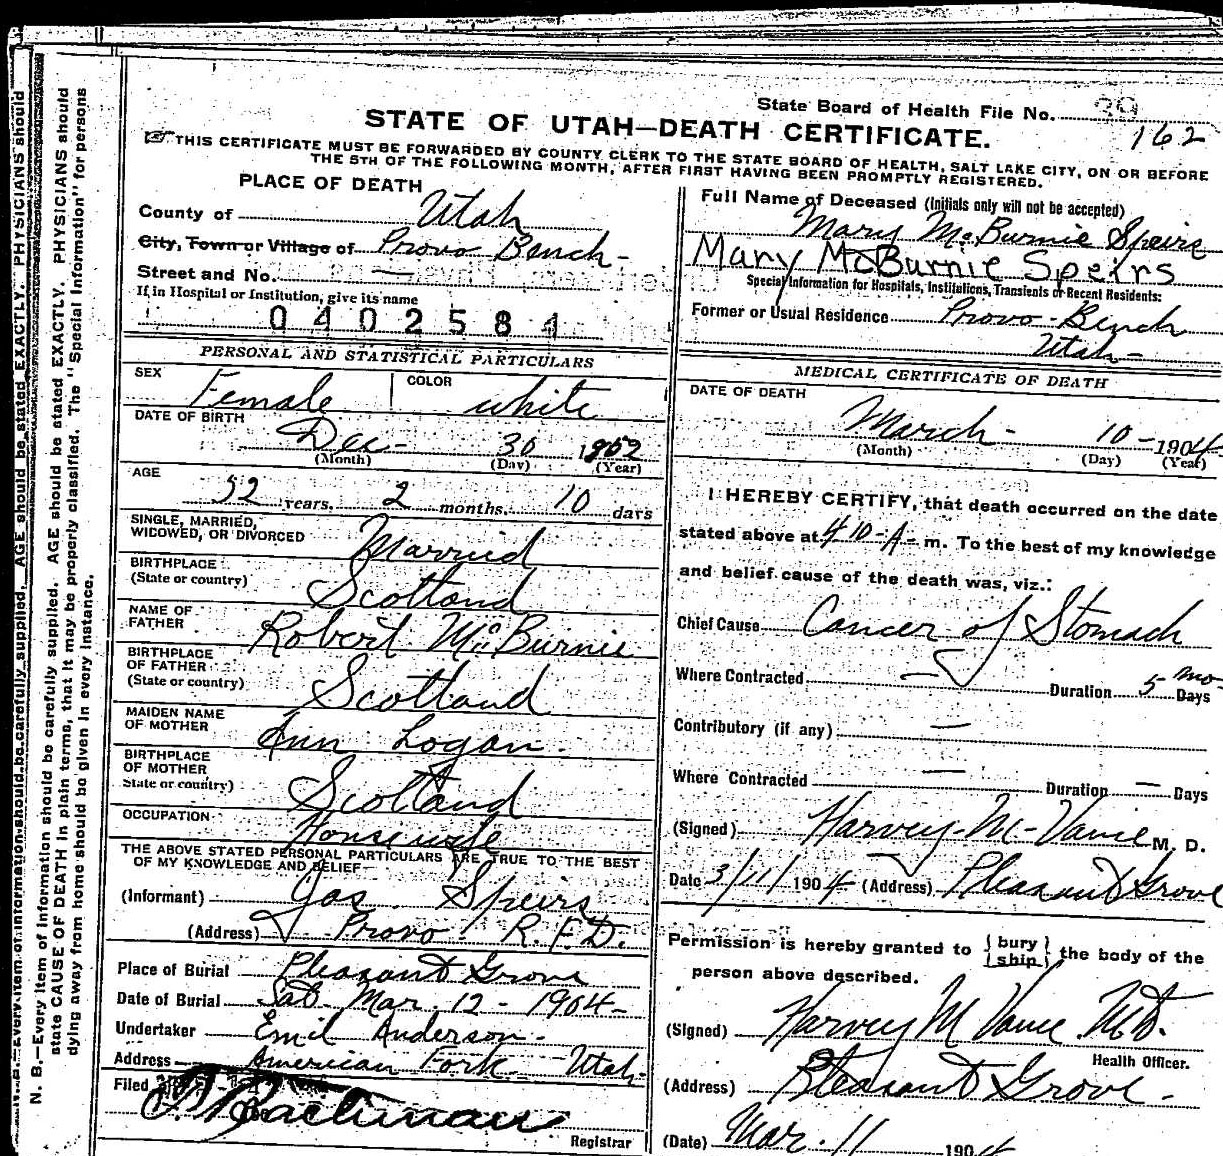 N. B.—Every item of information should be carefully supplied. AGE should be stated EXACTLY. PHYSICIANS should
N. B.—Every item of information should be carefully supplied. AGE should be stated EXACTLY. PHYSICIANS should
state CAUSE OF DEATH in plain terms, that it may be properly classified. The "Special Information" for persons
dying away from home should be given in every instance.
State Board of Health File No.
162
STATE OF UTAH—DEATH CERTIFICATE.
THIS CERTIFICATE MUST BE FORWARDED BY COUNTY CLERK TO THE STATE BOARD OF HEALTH, SALT LAKE CITY, ON OR BEFORE
THE 5TH OF THE FOLLOWING MONTH, AFTER FIRST HAVING BEEN PROMPTLY REGISTERED.
PLACE OF DEATH
County of Utah
City, Town or Village of Provo Bench
Street and No. —
If in Hospital or Institution, give its name
0402584
PERSONAL AND STATISTICAL PARTICULARS
SEX Female COLOR white
DATE OF BIRTH
Dec - 30
(Month) (Day) (Year)
AGE
52 years, 2 months, 10 days
SINGLE, MARRIED,
WIDOWED, OR DIVORCED Married
BIRTHPLACE
(State or country) Scotland
NAME OF
FATHER Robert McBurnie
BIRTHPLACE
OF FATHER
(State or country) Scotland
MAIDEN NAME
OF MOTHER Ann Logan.
BIRTHPLACE
OF MOTHER
State or country) Scotland
OCCUPATION Housewife
THE ABOVE STATED PERSONAL PARTICULARS ARE TRUE TO THE BEST
OF MY KNOWLEDGE AND BELIEF
(Informant) Jas. Speirs
(Address) Provo R.F.D.
Place of Burial Pleasant Grove
Date of Burial Sat. Mar. 12 - 1904-
Undertaker Emil Anderson.
Address American Fork Utah.
Filed
Registrar
Full Name of Deceased (Initials only will not be accepted)
Mary McBurnie Speirs
Mary McBurnie Speirs
Special Information for Hospitals, Institutions, Transients or Recent Residents:
Former or Usual Residence Provo-Bench
Utah-
MEDICAL CERTIFICATE OF DEATH
DATE OF DEATH
March - 10 - 1904
(Month) (Day) (Year)
I HEREBY CERTIFY, that death occurred on the date
stated above at 4 10 - A - m. To the best of my knowledge
and belief cause of the death was, viz.:
Chief Cause Cancer of Stomach
Where Contracted — Duration 5 mo Days
Contributory (if any) —
Where Contracted — Duration — Days
(Signed) Harvey-Mc-Vance M. D.
Date 3/11/1904 (Address) Pleasant Grove
Permission is hereby granted to {bury
ship} the body of the
person above described.
(Signed) Harvey M Vance M.D.
Health Officer.
(Address) Pleasant Grove -
(Date) Mar. 11 1904